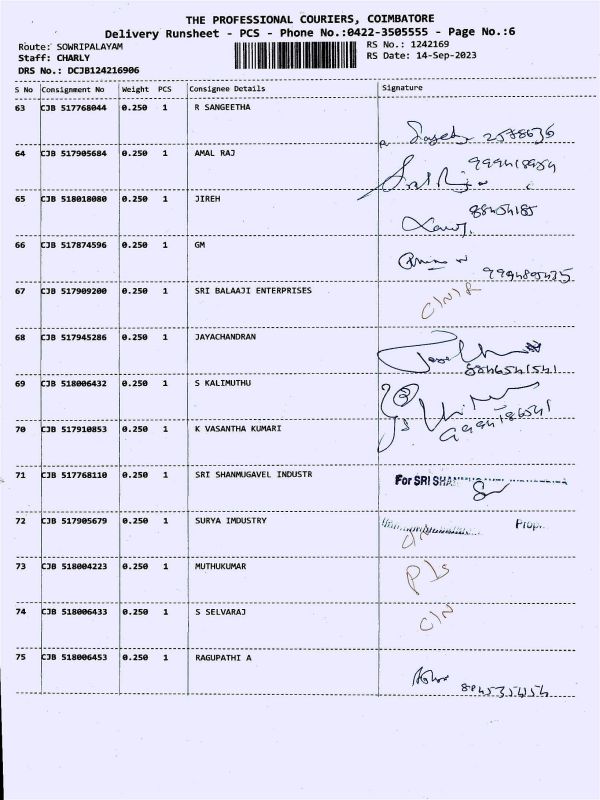 THE PROFESSIONAL COURIERS, COIMBATORE
Delivery Runsheet - PCS - Phone No.:0422-3505555 - Page No.:6
Route: SOWRIPALAYAM RS No.: 1242169
Staff: CHARLY RS Date: 14-Sep-2023
DRS No.: DCJB124216906
S No Consignment No Weight PCS Consignee Details Signature
63 CJB 517768044 0.250 1 R SANGEETHA
64 CJB 517905684 0.250 1 AMAL RAJ
65 CJB 518018080 0.250 1 JIREH
66 CJB 517874596 0.250 1 GM
67 CJB 517909200 0.250 1 SRI BALAAJI ENTERPRISES
68 CJB 517945286 0.250 1 JAYACHANDRAN
69 CJB 518006432 0.250 1 S KALIMUTHU
70 CJB 517910853 0.250 1 K VASANTHA KUMARI
71 CJB 517768110 0.250 1 SRI SHANMUGAVEL INDUSTR For SRI SHA
72 CJB 517905679 0.250 1 SURYA IMDUSTRY Prop.
73 CJB 518004223 0.250 1 MUTHUKUMAR
74 CJB 518006433 0.250 1 S SELVARAJ C/N
75 CJB 518006453 0.250 1 RAGUPATHI A